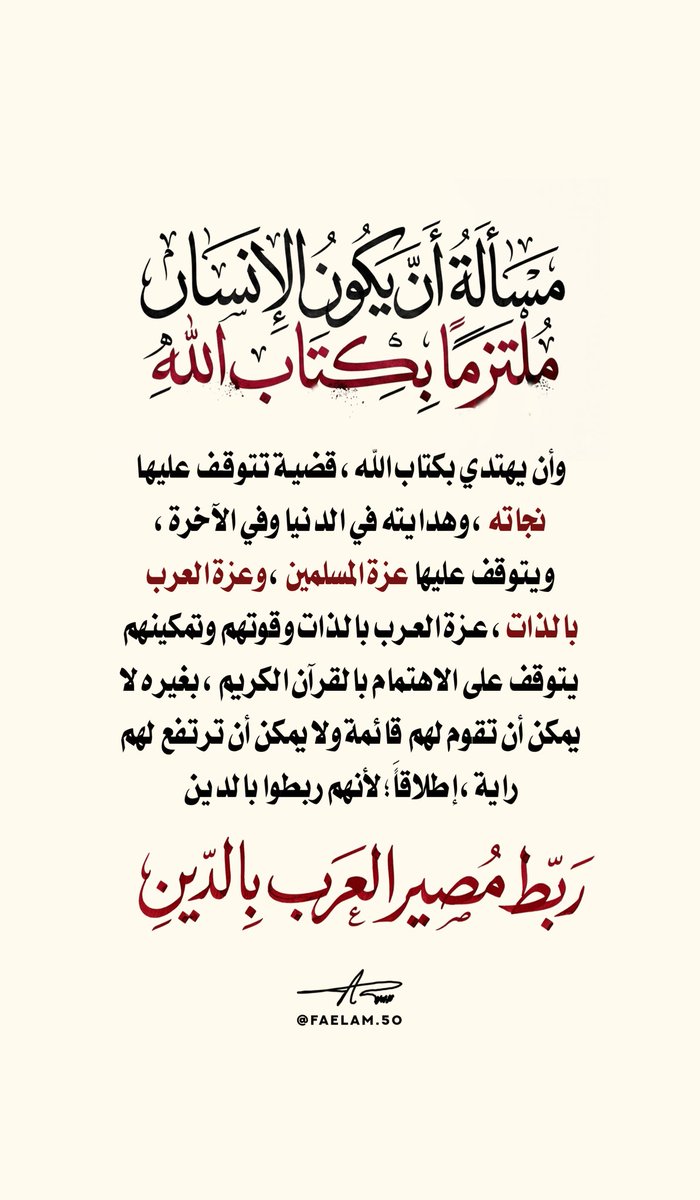 مَسْأَلَةُ أَنَّ يَكُونُ الإِنسَان
مُلْتَزِمًا بِكِتَابِ اللّٰهِ
وأن يهتدي بكتاب الله ، قضية تتوقف عليها
نجاته ، وهدايته في الدنيا وفي الآخرة ،
ويتوقف عليها عزة المسلمين ، وعزة العرب
بالذات ، عزة العرب بالذات وقوتهم وتمكينهم
يتوقف على الاهتمام بالقرآن الكريم ، بغيره لا
يمكن أن تقوم لهم قائمة ولا يمكن أن ترتفع لهم
راية ، إطلاقاً ؛ لأنهم ربطوا بالدين
رَبّط مُصير العَرَب بِالدّينِ
@FAELAM.50